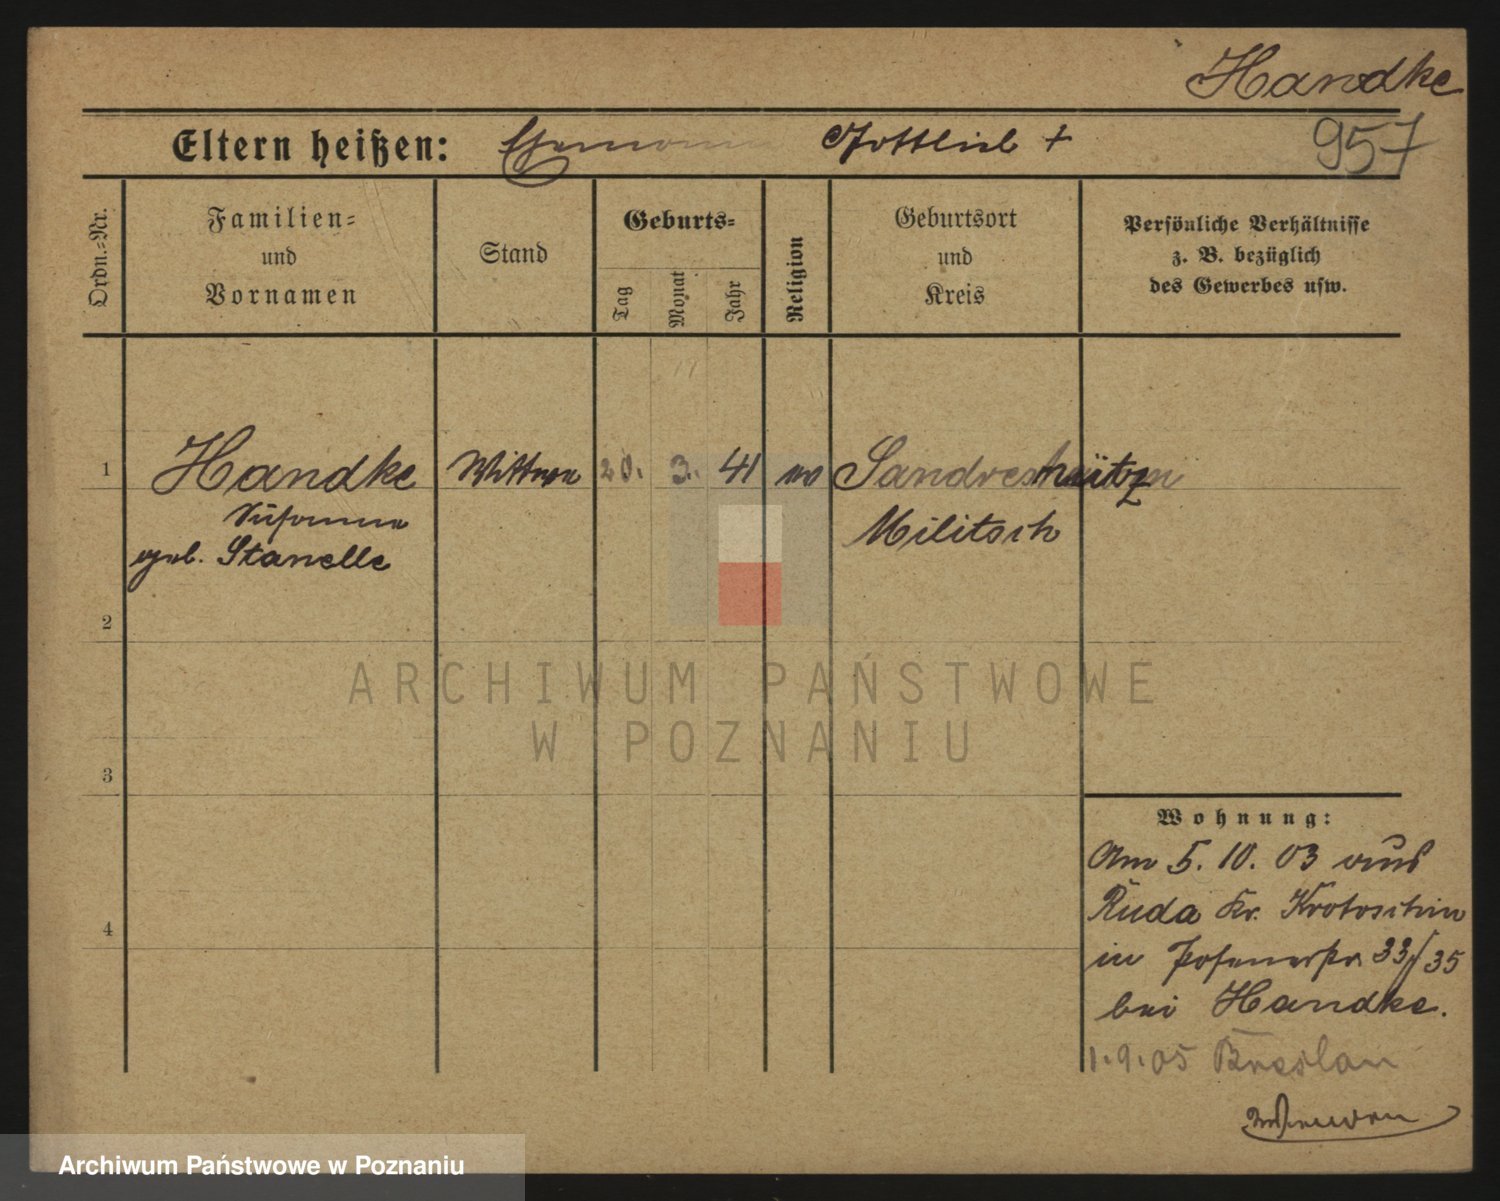 Handke
Eltern heißen: Ehemann Gottlieb +
957
Ordn.=Nr.
Familien=
und
Vornamen
Stand
Geburts=
Tag
Monat
Jahr
Religion
Geburtsort
und
Kreis
Persönliche Verhältnisse
z. B. bezüglich
des Gewerbes usw.
1
Handke Wittwe 20. 3. 41 ev
Susanna
geb. Stanelle
Militsch
2
3
4
Wohnung:
Am 5. 10. 03 aus
Ruda Kr. Krotoschin
in Posenerstr 33/35
bei Handke.
1.9.05 Breslau
ARCHIWUM PAŃSTWOWE
W POZNANIU
Archiwum Państwowe w Poznaniu